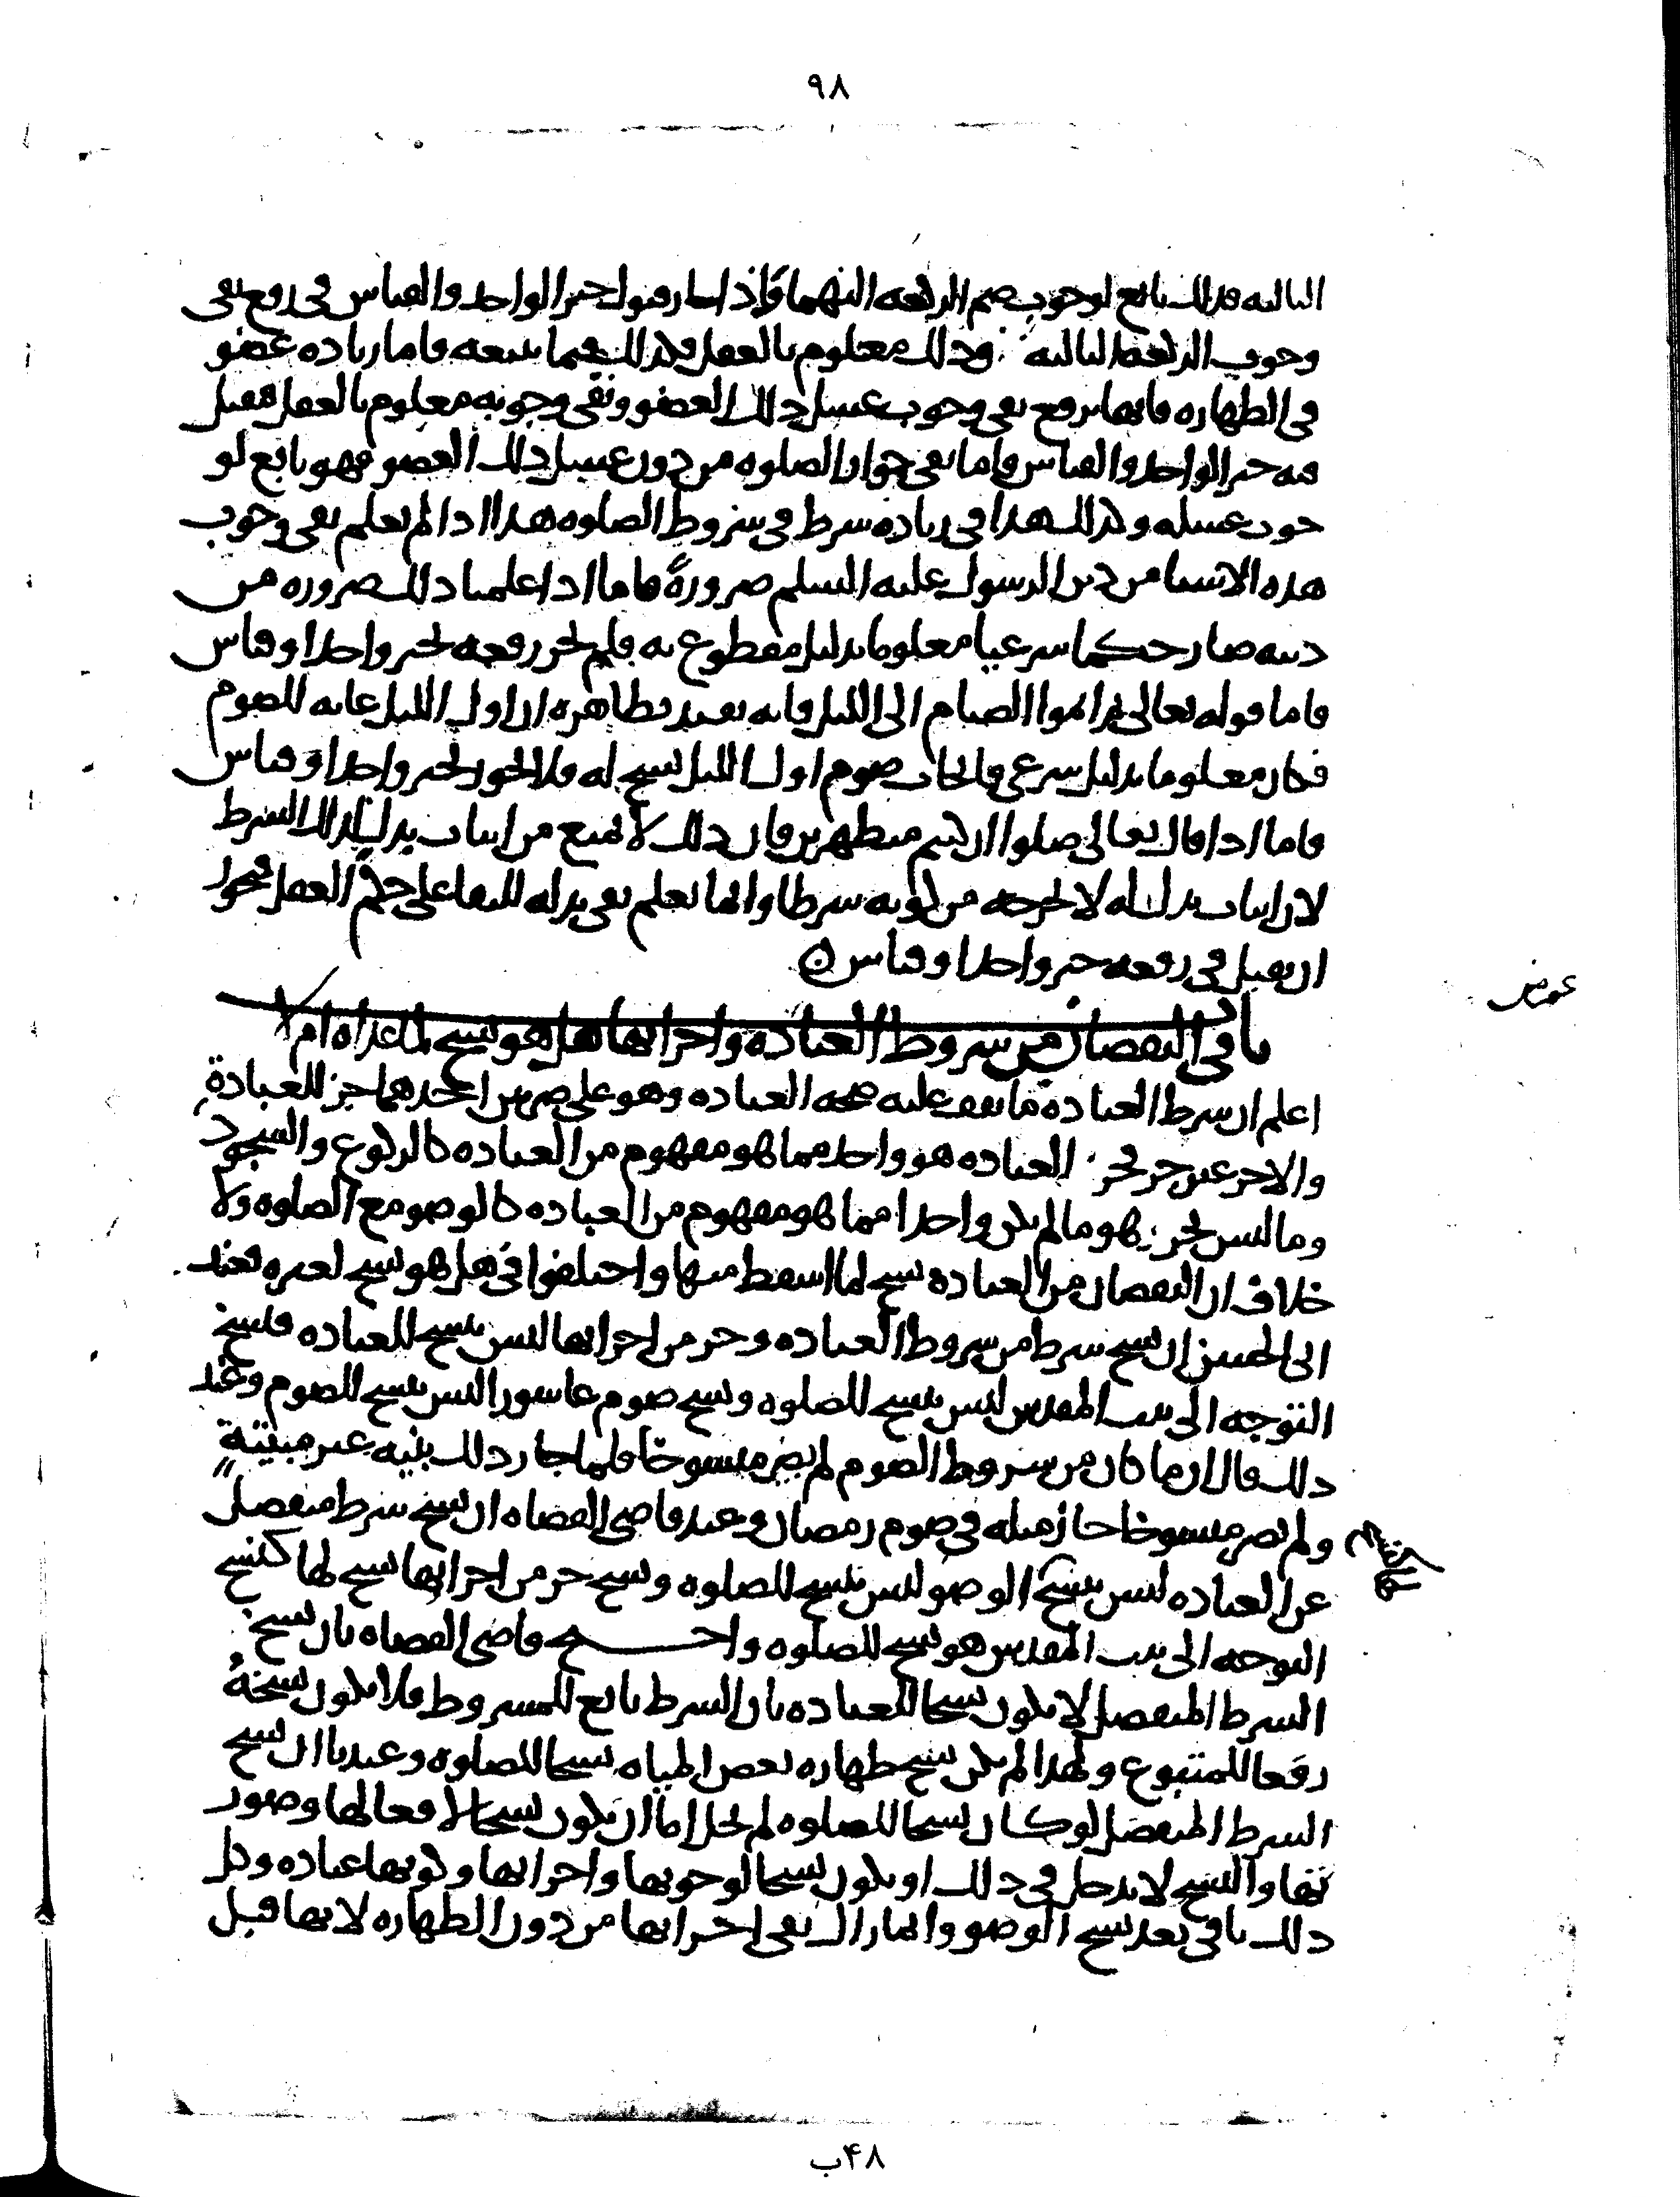 ٩٨
الثالثه فذلك تابع لوجوب ضم الركعه اليهما فاذا جاز قبول خبر الواحد والقياس فى رفع نفى
وجوب الركعه الثالثه وذلك معلوم بالعقل فكذلك فيما يتبعه فاما زياده عضو
فى الطهاره فانها ترفع نفى وجوب غسل ذلك العضو ونفى وجوبه معلوم بالعقل فقبل
فيه خبر الواحد والقياس واما نفى جواز الصلوه من دون غسل ذلك العضو فهو تابع لو
جوب غسله وكذلك هذا فى زياده شرط فى شروط الصلوه هذا اذا لم نعلم نفى وجوب
هذه الاشيا من دين الرسول عليه السلم ضرورةً فاما اذا علمنا ذلك ضروره من
دينه صار حكما شرعيا معلوما بدليل مقطوع به فلم يجز رفعه بخبر واحد او قياس
فاما قوله تعالى ثم اتموا الصيام الى الليل فانه يفيد بظاهره ان اول الليل غايه للصوم
فكان معلوما بدليل شرعى فايجاب صوم اول الليل نسخ له فلا يجوز بخبر واحد او قياس
فاما اذا قال تعالى صلوا ان كنتم متطهرين فان ذلك لا يمنع من اثبات بدل لذلك الشرط
لان اثبات بدل له لا يخرجه من كونه شرطا وانما نعلم نفى بدله للبقا على حكم العقل فيجوز
ان يقبل فى رفعه خبر واحد او قياس
باب فى النقصان من شروط العباده واجزائها هل هو نسخ لما عداه ام لا
اعلم ان شرط العباده ما يقف عليه صحه العباده وهو على ضربين احدهما جز للعبادةِ
والاخر غير جز فجز العباده هو واحد مما هو مفهوم من العباده كالركوع والسجود
وما ليس بجز فهو ما لم يكن واحدا مما هو مفهوم من العباده كالوضو مع الصلوه ولا
خلاف ان النقصان من العباده نسخ لما اسقط منها واختلفوا فى هل هو نسخ لغيره فعند
ابى الحسن ان نسخ شرط من شروط العباده وجز من اجزائها ليس بنسخ للعباده فنسخ
التوجه الى بيت المقدس ليس بنسخ للصلوه ونسخ صوم عاشورا ليس بنسخ للصوم وعند
ذلك قال ان ما كان من شروط الصوم لم يصر منسوخا فلما جاز ذلك بنيه غير مبيتةٍ
ولم يصر منسوخا جاز مثله فى صوم رمضان وعند قاضى القضاه ان نسخ شرط منفصل
عن العباده ليس بنسخ الوضو ليس بنسخ للصلوه ونسخ جز من اجزائها نسخ لها كنسخ
التوجه الى بيت المقدس هو نسخ للصلوه واحــتج قاضى القضاه بان نسخ
الشرط المنفصل لا يكون نسخا للعباده بان الشرط تابع للمشروط فلا يكون نسخهُ
رفعا للمتبوع ولهذا لم يكن نسخ طهاره بعض المياه نسخا للصلوه وعندنا ان نسخ
الشرط المنفصل لو كان نسخا للصلوه لم يخل اما ان يكون نسخا لافعالها وصور
تها والنسخ لا يدخل فى ذلك او يكون نسخا لوجوبها واجزائها وكونها عباده وكل
ذلك باقى بعد نسخ الوضو وانما زال نفى اجزائها من دون الطهاره لانها قبل
۴٨ب